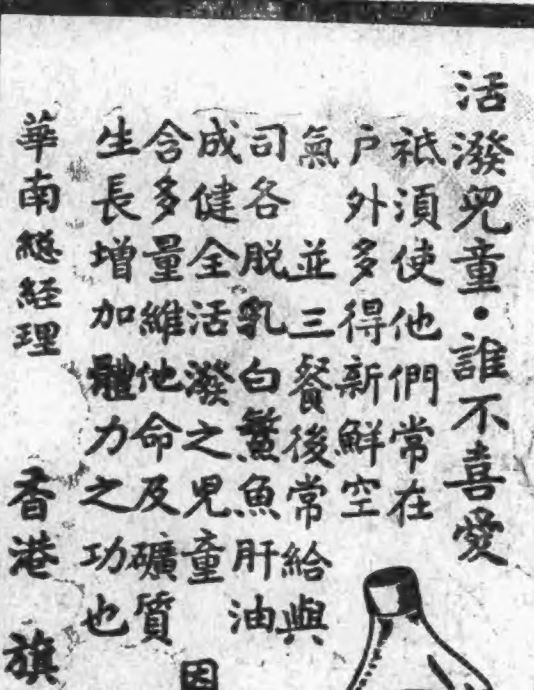 活潑兒童・誰不喜愛
祇須使他們常在
户外多得新鮮空
氣 並三餐後常給與
司各脱乳白鰵魚肝油
成健全活潑之兒童
因
含多量維他命及礦質
生長增加體力之功也
華南總經理 香港 旗